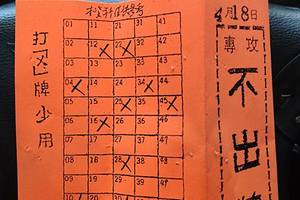 參考
打☒牌少用
01 11 21 31 41
02 12 22 32 42
03 13 23 33 43
04 14 24 34 44
05 15 25 35 45
06 16 26 36 46
07 17 27 37 47
08 18 28 38 48
09 19 29 39 49
10 20 30 40
4月18日
專攻
不出